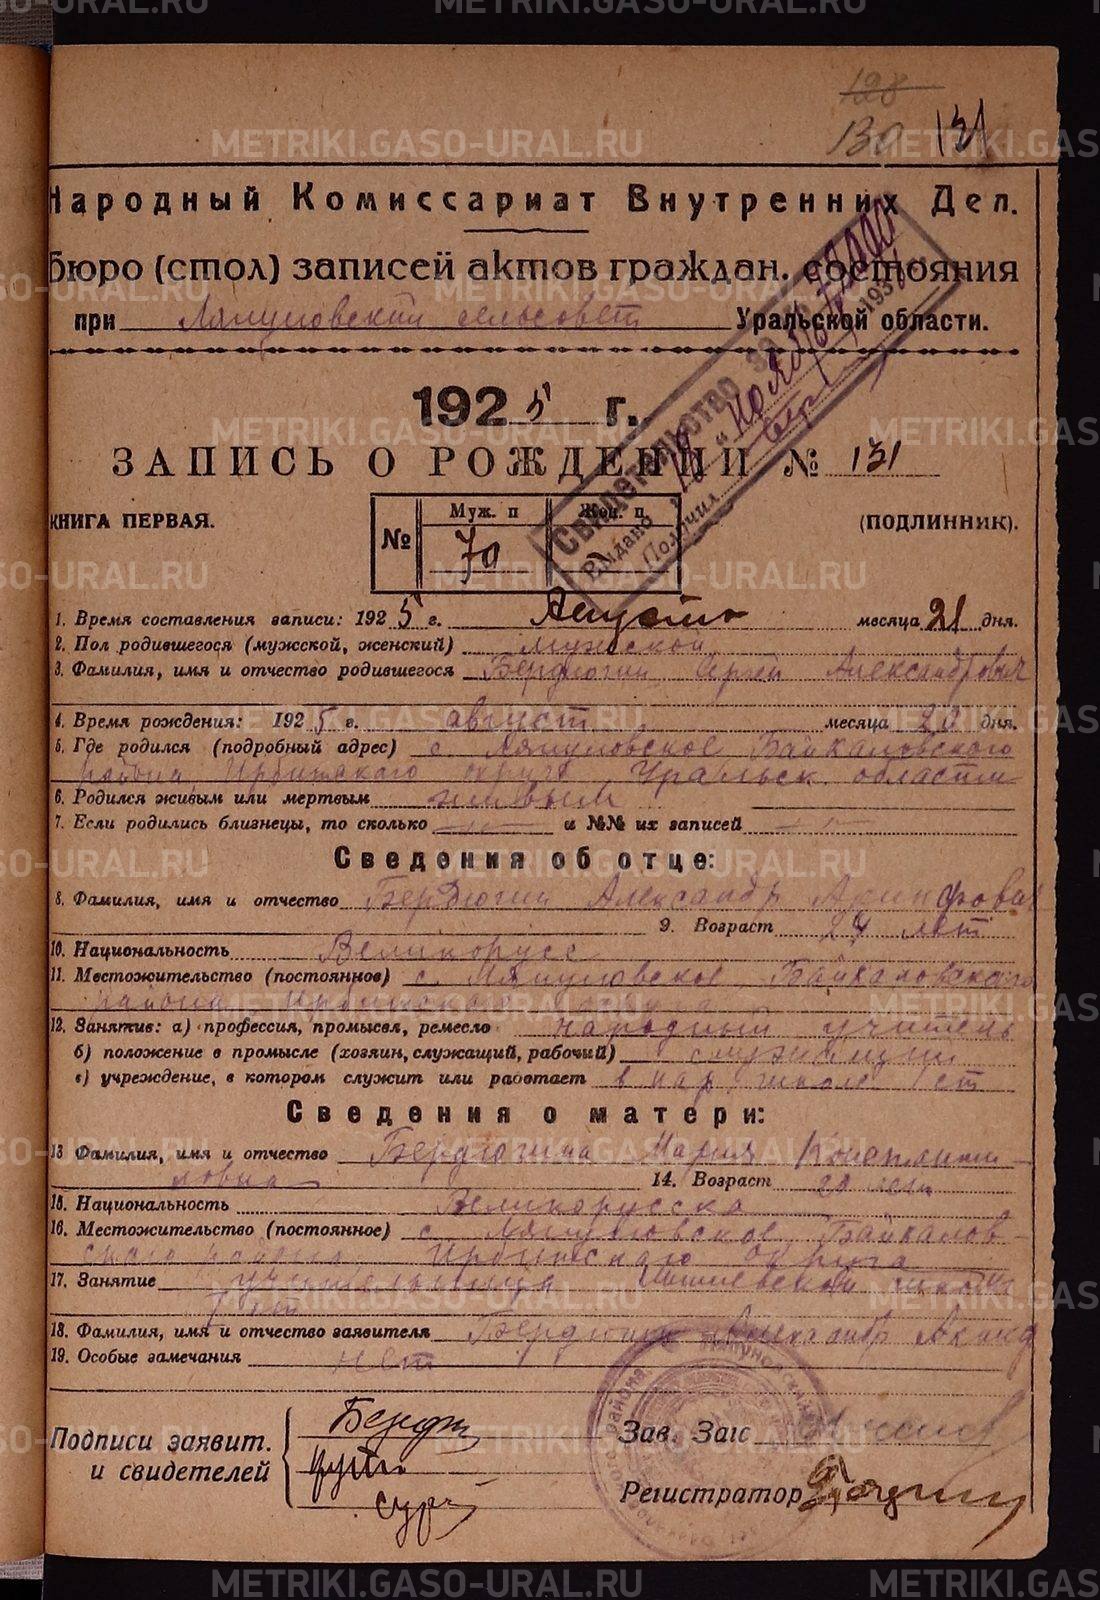 128
130 131
Народный Комиссариат Внутренних Дел.
бюро (стол) записей актов граждан. состояния
при Ляпуновский сельсовет Уральской области.
1925 г.
ЗАПИСЬ О РОЖДЕНИИ № 131
Свидетельство
Выдано "18" ноября 193
Получил
КНИГА ПЕРВАЯ. (ПОДЛИННИК).
№ Муж. п Жен. п
70
1. Время составления записи: 1925 г. Августа месяца 21 дня.
2. Пол родившегося (мужсской, женский) мужской
3. Фамилия, имя и отчество родившегося Бердюгин Сергей Александрович
4. Время рождения: 1925 г. август месяца 20 дня.
5. Где родился (подробный адрес) с. Ляпуновское Байкаловского
района Ирбитского округа Уральск. области
6. Родился живым или мертвым живым
7. Если родились близнецы, то сколько — и №№ их записей —
Сведения об отце:
8. Фамилия, имя и отчество Бердюгин Александр
9. Возраст 24 лет
10. Национальность Великорусс
11. Местожительство (постоянное) с. Ляпуновское Байкаловского
района Ирбитского округа
12. Занятие: а) профессия, промысел, ремесло народный учитель
б) положение в промысле (хозяин, служащий, рабочий) служащий
в) учреждение, в котором служит или работает в нар школе
Сведения о матери:
13 Фамилия, имя и отчество Бердюгина Мария
14. Возраст
15. Национальность Великорусска
16. Местожительство (постоянное) с. Ляпуновское Байкалов-
ского района Ирбитского округа
17. Занятие учительница школы
18. Фамилия, имя и отчество заявителя Бердюгин Александр
19. Особые замечания нет
Подписи заявит.
и свидетелей
Зав. Загс
Регистратор
METRIKI.GASO-URAL.RU